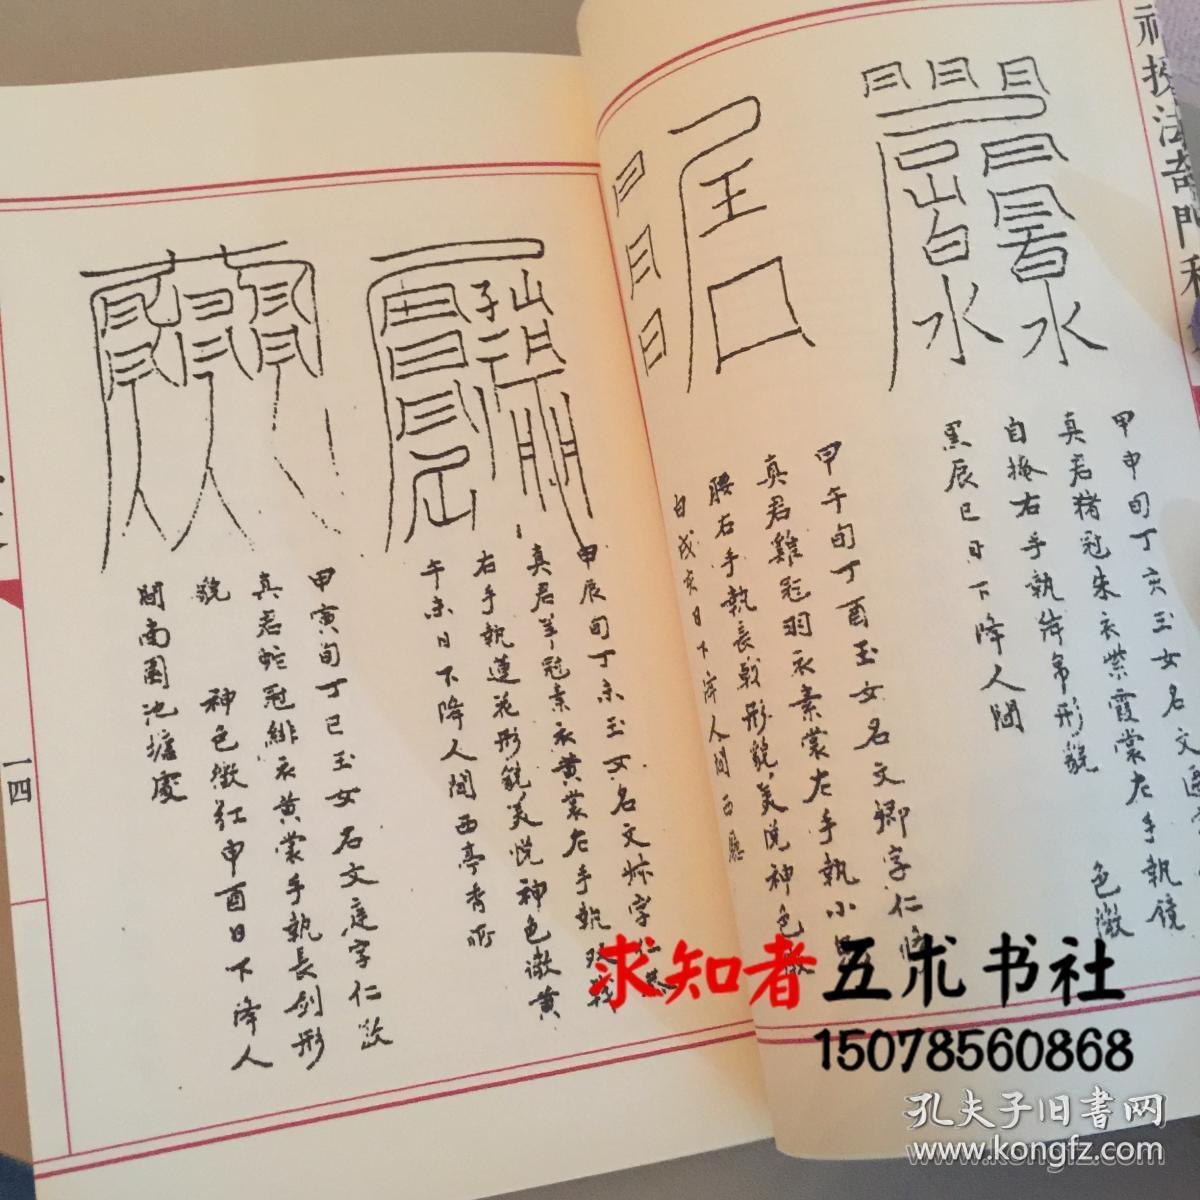 甲申旬丁亥玉女名文
真君猪冠朱衣紫霞裳左手執鏡
自掩右手執絳帛形貌 色微
黑辰巳日下降人間
甲午旬丁酉玉女名文卿字仁
真君雞冠羽衣素裳左手執小
腰右手執長戟形貌美悦神色微
白戌亥日下降人間西
甲辰旬丁未玉女名文 字仁恭
真君羊冠素衣黄裳左手執 戟
右手執蓮花形貌美悦神色微黄
午未日下降人間西亭香所
甲寅旬丁巳玉女名文定字仁
真君蛇冠緋衣黄裳手執長劍形
貌 神色微紅申酉日下降人
間南園池塘處
一四
求知者五术书社
15078560868
孔夫子旧書网
www.kongfz.com